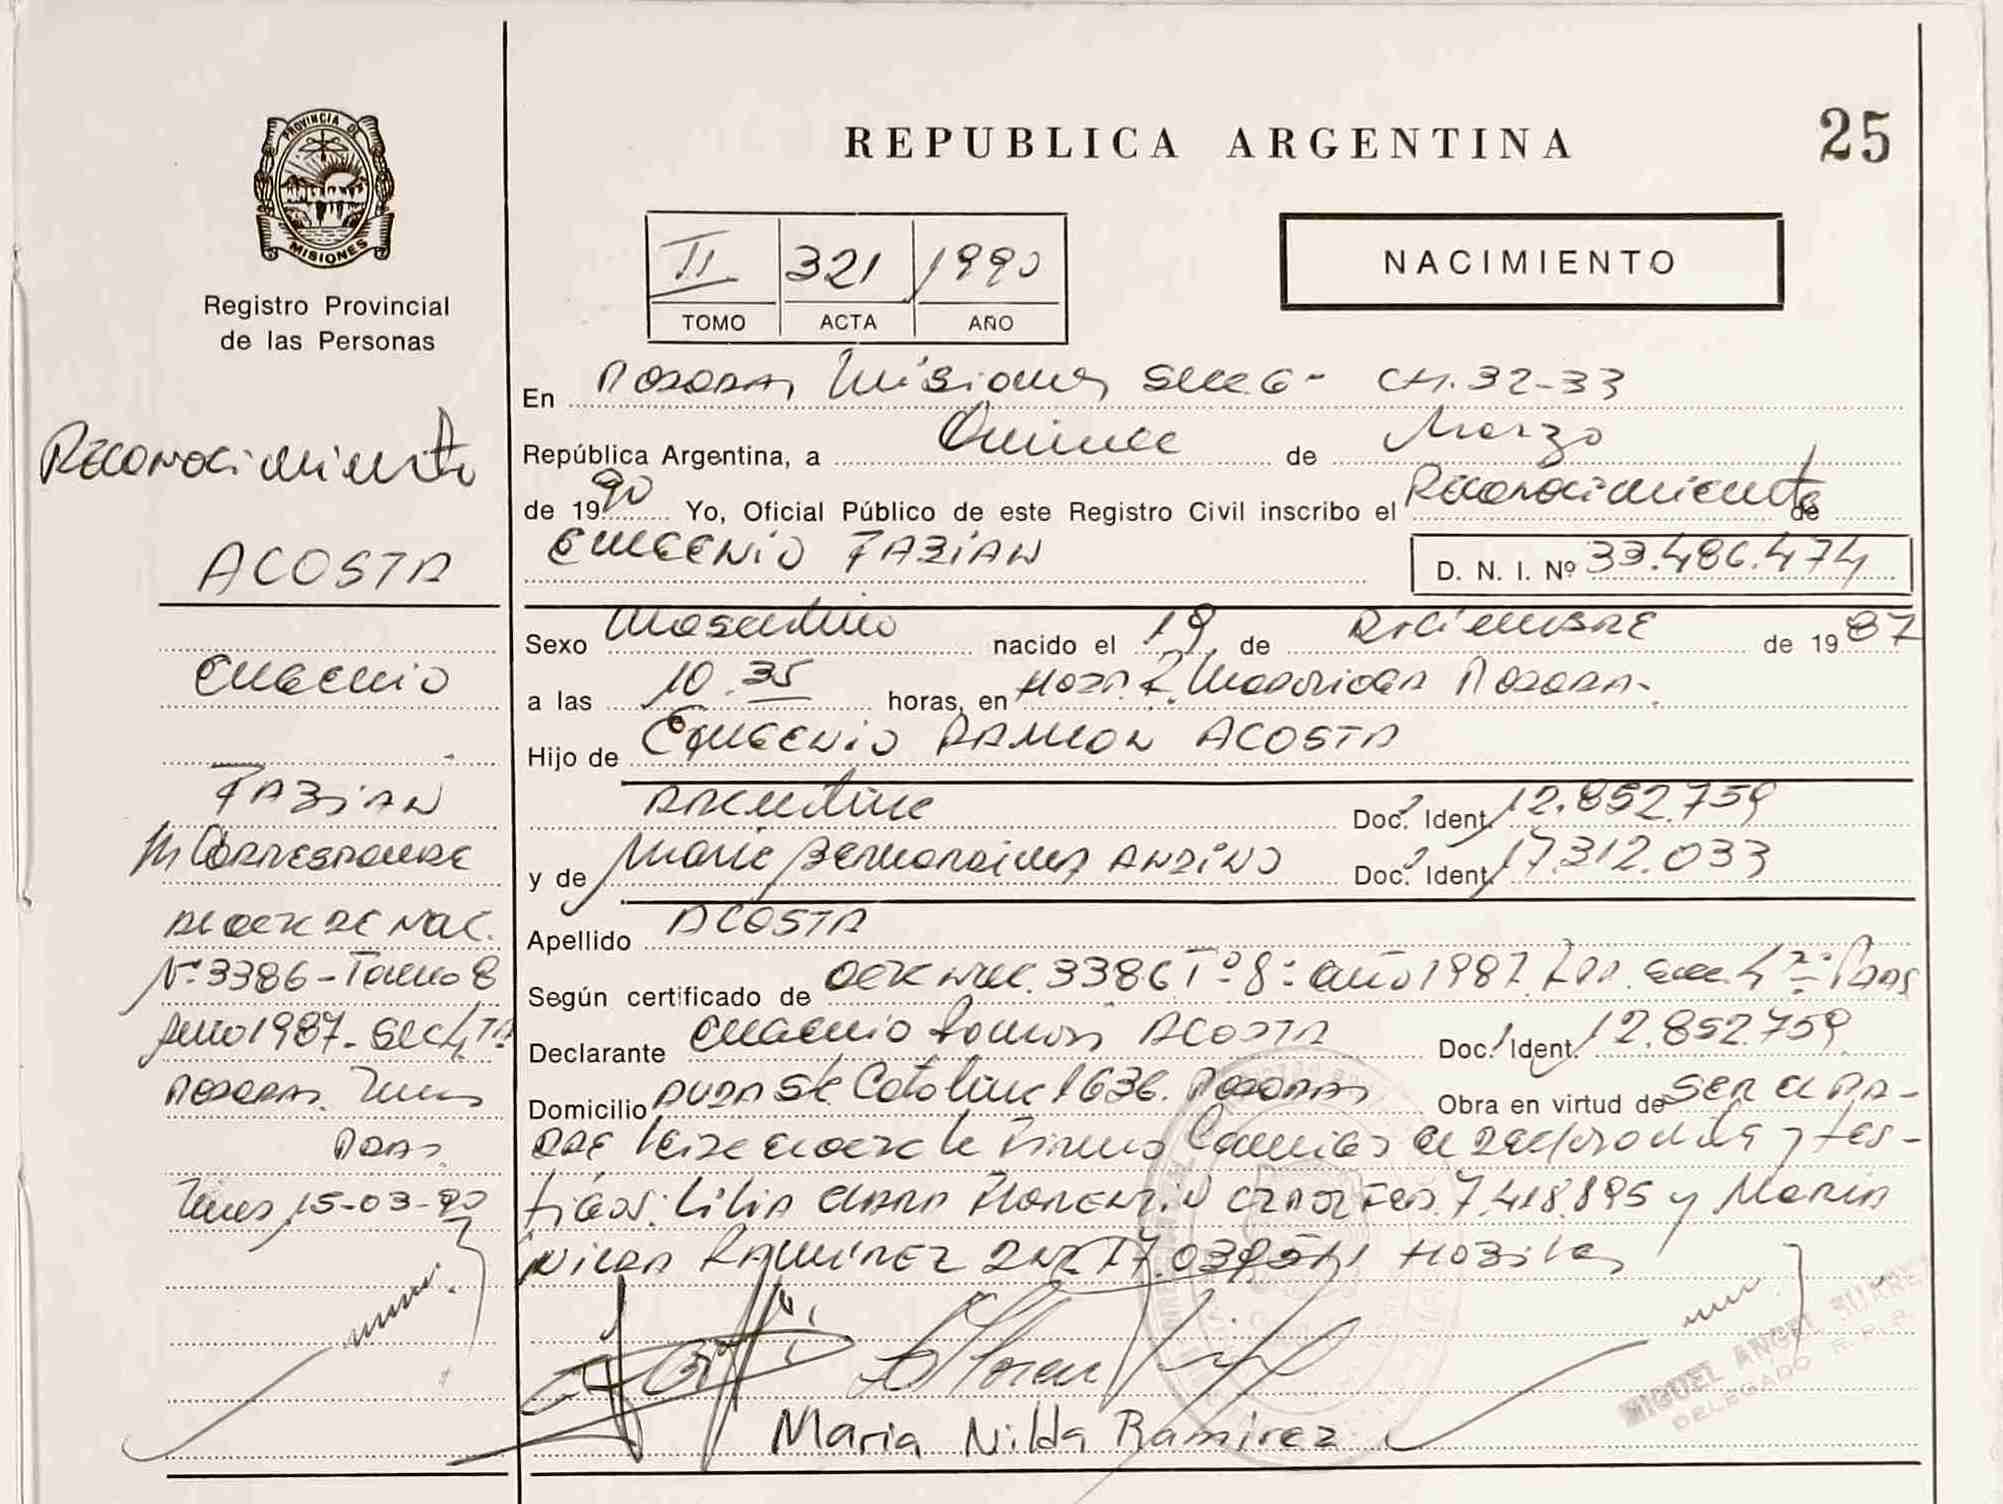 PROVINCIA DE
MISIONES
Registro Provincial
de las Personas
Reconocimiento
ACOSTA
Eugenio
FABIAN
Corresponde
al acta de Nac.
Nº 3386 - Tomo 8
Año 1987 - Secc 4ta
Posadas. Mnes
Pdas.
Mnes, 15-03-90
REPUBLICA ARGENTINA
25
II 321 1990
TOMO ACTA AÑO
NACIMIENTO
En Posadas, Misiones Secc 6 - CH. 32-33
República Argentina, a Quince de Marzo
de 1990 Yo, Oficial Público de este Registro Civil inscribo el Reconocimiento de
EUGENIO FABIAN
D. N. I. Nº 33.486.474
Sexo Masculino nacido el 19 de Diciembre de 1987
a las 10.35 horas, en Hosp. R. Madariaga Posadas.
Hijo de EUGENIO RAMON ACOSTA
Argentino Doc. Ident. 12.852.759
y de Maria Bernardina ANDINO Doc. Ident. 17.312.033
Apellido ACOSTA
Según certificado de acta nac. 3386 Tº 8: año 1987. Secc. 4ta: Pdas
Declarante Eugenio Ramon ACOSTA Doc. Ident. 12.852.759
Domicilio Avda Sta Catalina 1636. Posadas Obra en virtud de ser el pa-
dre leida el acta la firma conmigo el declarante y tes-
tigos: Lilia CLARA FLORENTIN 7.418.895 y Maria
NILDA RAMIREZ Habiles
Maria Nilda Ramirez
MIGUEL ANGEL SUAREZ
DELEGADO R. P. P.